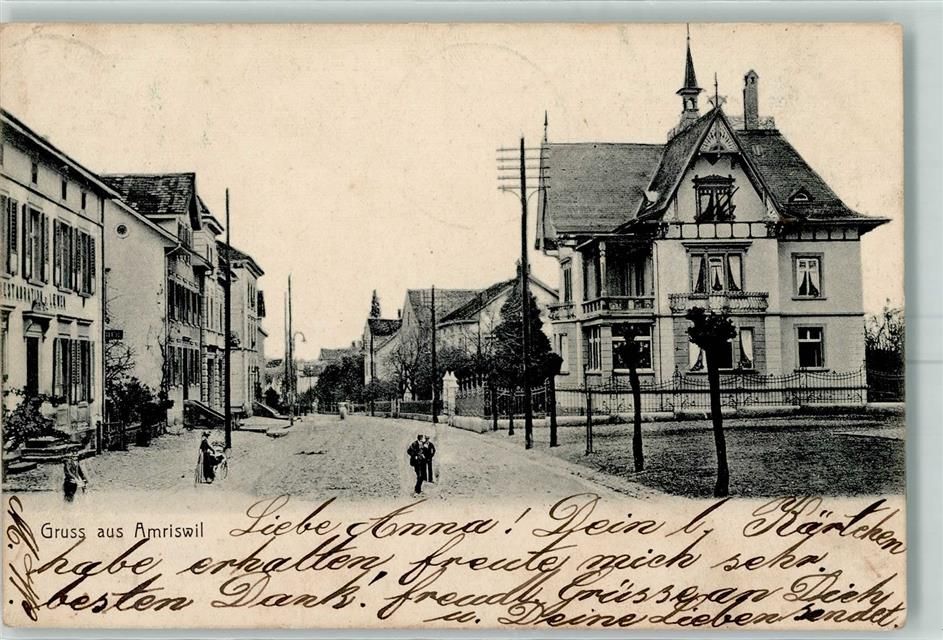 RESTAURANT z. LÖWEN
Gruss aus Amriswil
Liebe Anna! Dein l. Kärtchen
habe erhalten, freute mich sehr.
besten Dank! freudl. Grüsse an Dich
u. Deine Lieben sendet